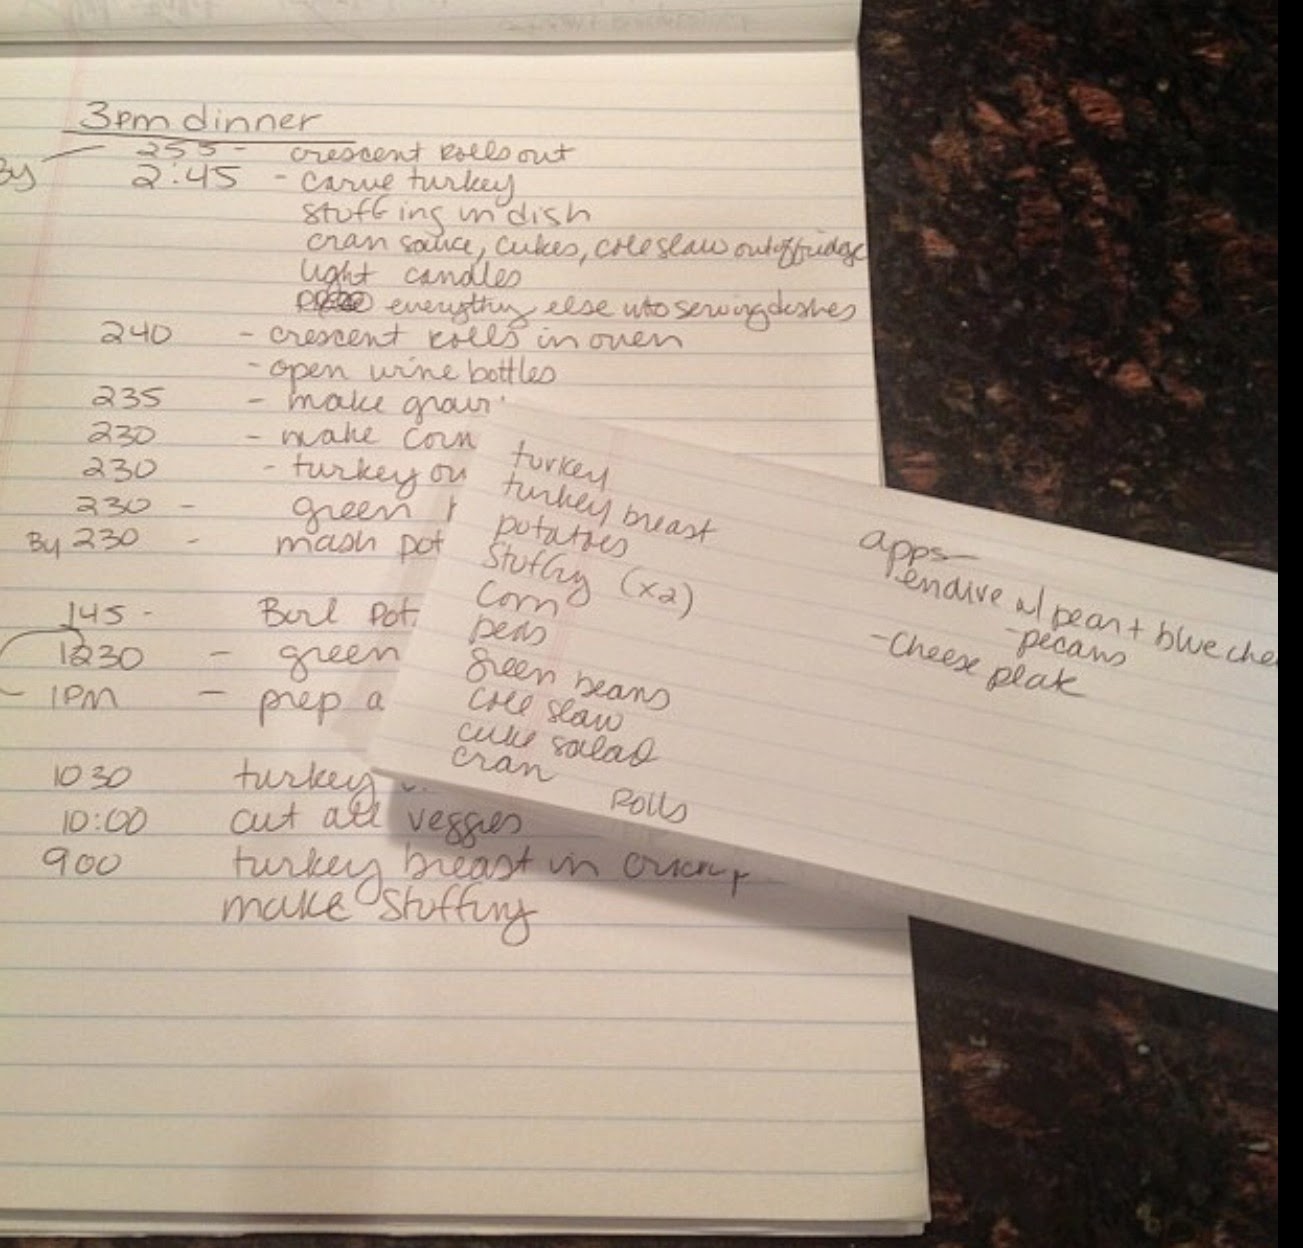 3pm dinner
255 - crescent rolls out
By 2:45 - carve turkey
stuffing in dish
cran sauce, cukes, cole slaw out of fridge
light candles
everything else into serving dishes
240 - crescent rolls in oven
- open wine bottles
235 - make grav
230 - make corn
230 - turkey ou
230 - green
By 230 - mash pot
145 - Boil pot
1230 - green
1PM - prep a
1030 turkey
10:00 cut all veggies
900 turkey breast in crock p
make stuffing
turkey
turkey breast
potatoes
stuffing (x2)
corn
peas
green beans
cole slaw
cuke salad
cran
Rolls
apps
endive w/ pear + blue che
- pecans
- Cheese plate